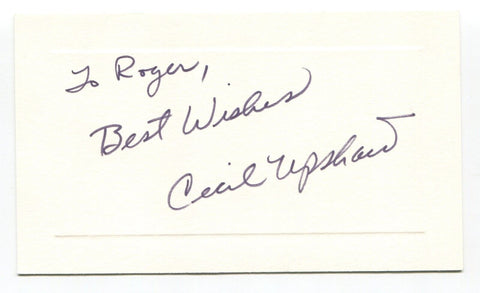 To Roger,
Best Wishes
Cecil Upshaw